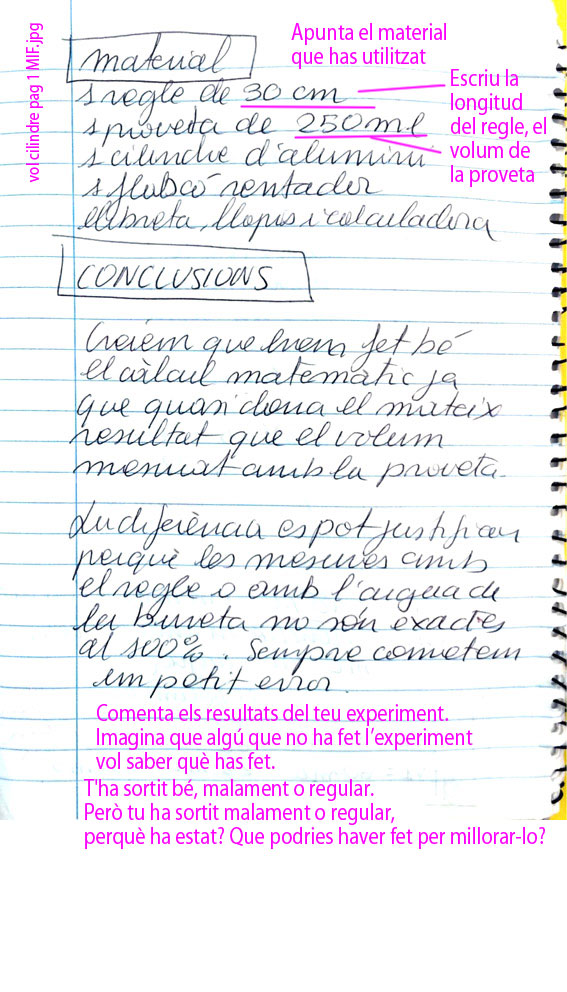 vol cilindre pag 1 MIF.jpg
Apunta el material
que has utilitzat
material
1 regle de 30 cm
Escriu la
longitud
del regle, el
volum de
la proveta
1 proveta de 250 ml
1 cilindre d'alumini
1 flascó rentador
llibreta, llapis i calculadora
CONCLUSIONS
Creiem que hem fet bé
el càlcul matemàtic ja
que quasi dona el mateix
resultat que el volum
mesurat amb la proveta.
La diferència es pot justificar
perquè les mesures amb
el regle o amb l'aigua de
la bureta no són exactes
al 100%. Sempre cometem
un petit error.
Comenta els resultats del teu experiment.
Imagina que algú que no ha fet l'experiment
vol saber què has fet.
T'ha sortit bé, malament o regular.
Però tu ha sortit malament o regular,
perquè ha estat? Que podries haver fet per millorar-lo?